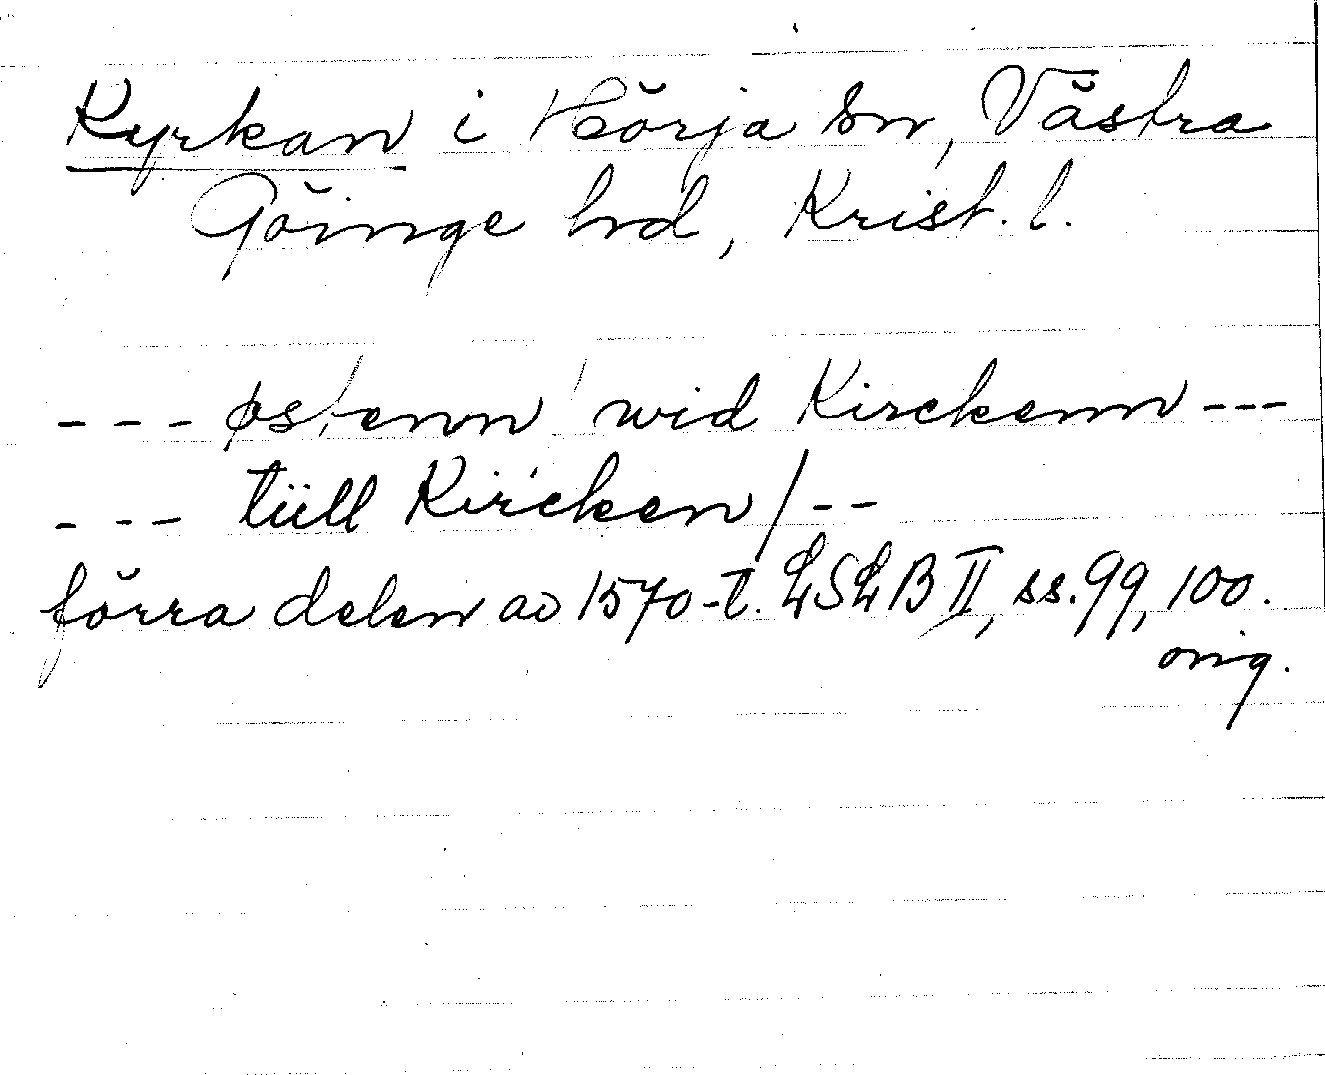 Kyrkan i Hörja sn, Västra
Göinge hd, Krist. l.
--- østenn wid Kirckenn ---
--- tüll Kircken/--
förra delen av 1570-t. LSLB II, ss. 99, 100.
orig.